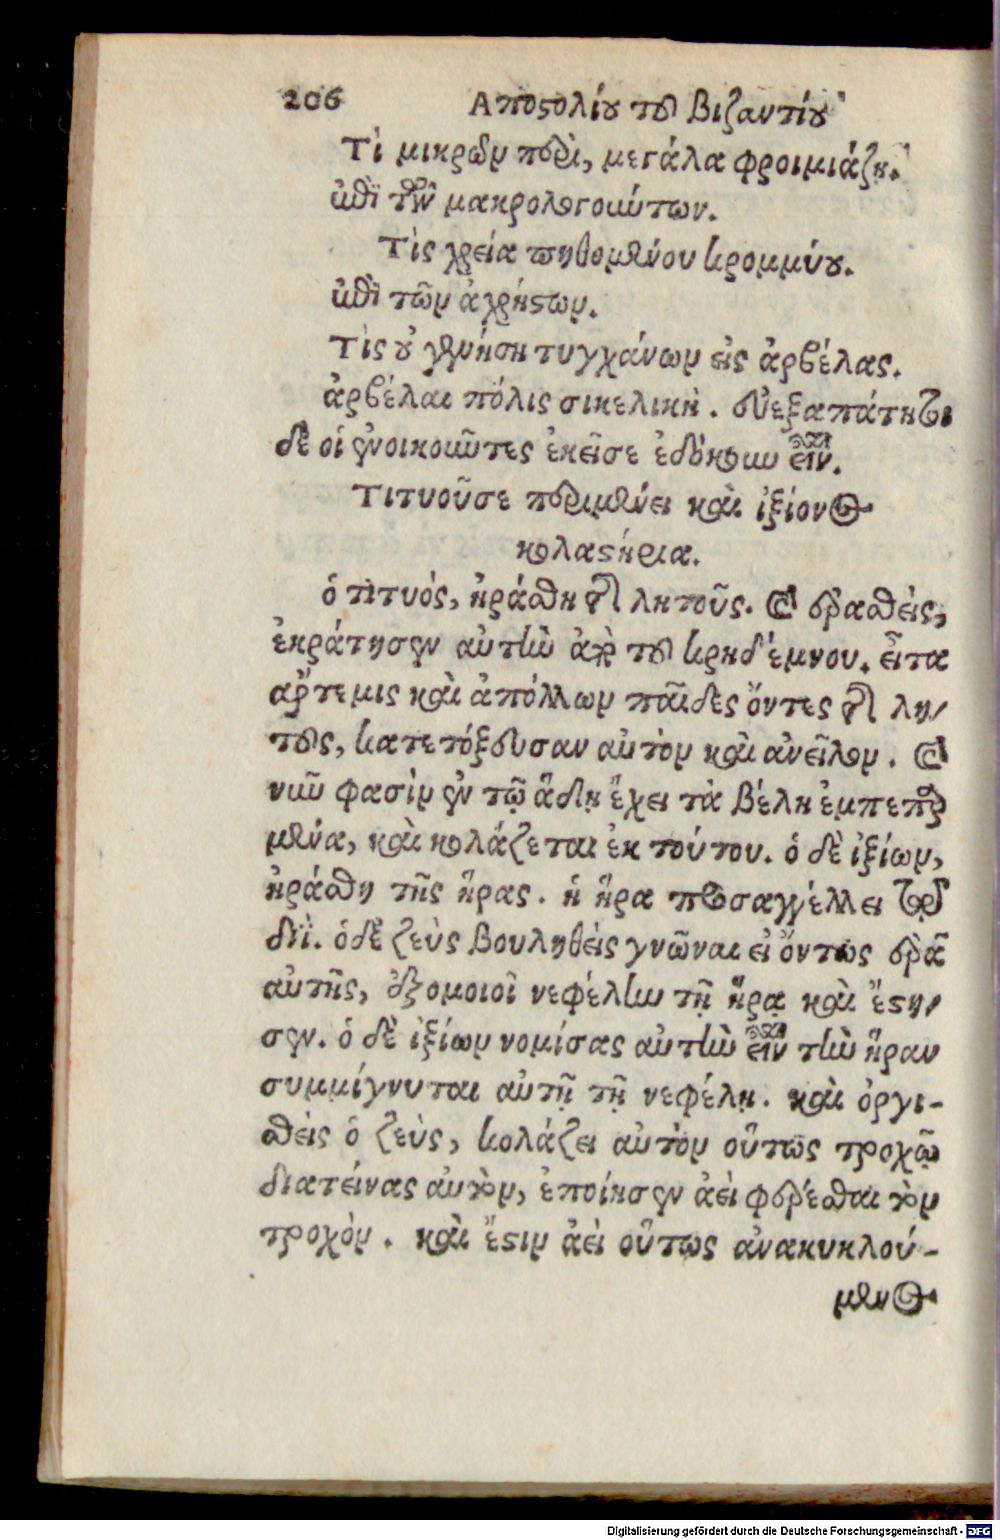 206 Αποστολίου του Βιζαντίου
Τί μικρῶν πέρι, μεγάλα φροιμιάζῃ.
ἐπὶ τῶν μακρολογούντων.
Τὶς χρεία πηθομένου κρομμύου.
ἐπὶ τῶν ἀχρήστων.
Τὶς οὐ γενήση τυγχάνων εἰς ἀρβέλας.
ἀρβέλαι πόλις σικελικὴ. εὐεξαπάτητοι
δὲ οἱ ἐνοικοῦντες ἐκεῖσε ἐδόκουν εἶναι.
Τιτυοῦσε περιμένει καὶ ἰξίονος
κολαστήρια.
ὁ τιτυός, ἠράσθη τῆς λητοῦς. καὶ ἐρασθεὶς,
ἐκράτησεν αὐτὴν ἀπὸ τοῦ κρηδέμνου. εἶτα
αρτεμις καὶ ἀπόλλων παῖδες ὄντες τῆς λη-
τοῦς, κατετόξευσαν αὐτὸν καὶ ἀνεῖλον. καὶ
νῦν φασὶν ἐν τῷ ἅδῃ ἔχει τὰ βέλη ἐμπεπαρ
μένα, καὶ κολάζεται ἐκ τούτου. ὁ δὲ ἰξίων,
ἠράσθη τῆς ἥρας. ἡ ἥρα προσαγγέλλει τῷ
διΐ. ὁ δὲ ζεὺς βουληθεὶς γνῶναι εἰ ὄντως ἐρᾶ
αὐτῆς, ἐξομοιοῖ νεφέλην τῇ ἥρᾳ καὶ ἔστη-
σεν. ὁ δὲ ἰξίων νομίσας αὐτὴν εἶναι τὴν ἥραν
συμμίγνυται αὐτῇ τῇ νεφέλῃ. καὶ ὀργι-
σθεὶς ὁ ζεὺς, κολάζει αὐτὸν οὕτως τροχῷ
διατείνας αὐτὸν, ἐποίησεν ἀεὶ φέρεσθαι τὸν
τροχὸν. καὶ ἔστιν ἀεὶ οὕτως ἀνακυκλού-
μενος
Digitalisierung gefördert durch die Deutsche Forschungsgemeinschaft - DFG